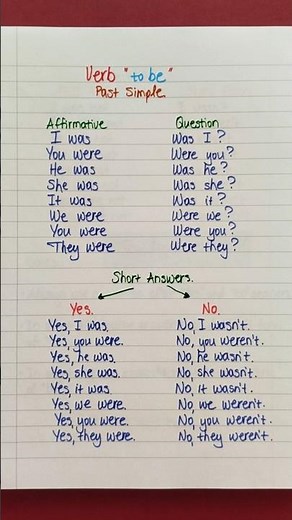 Verb "to be"
Past Simple.
Affirmative
I was
You were
He was
She was
It was
We were
You were
They were
Question
Was I?
Were you?
Was he?
Was she?
Was it?
Were we?
Were you?
Were they?
Short Answers.
Yes.
Yes, I was.
Yes, you were.
Yes, he was.
Yes, she was.
Yes, it was.
Yes, we were.
Yes, you were.
Yes, they were.
No.
No, I wasn't.
No, you weren't.
No, he wasn't.
No, she wasn't.
No, it wasn't.
No, we weren't.
No, you weren't.
No, they weren't.